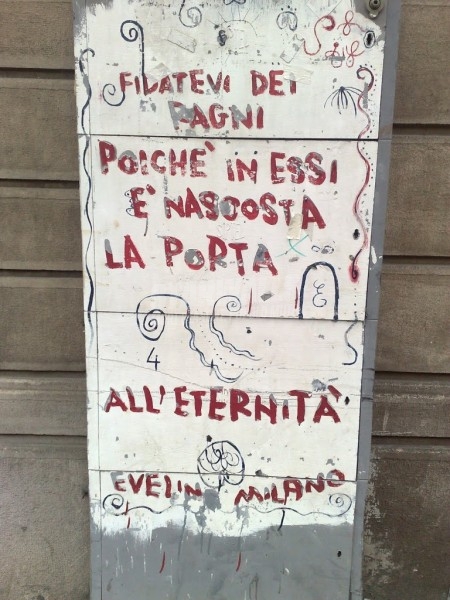 FIDATEVI DEI
RAGNI
POICHE' IN ESSI
E' NASCOSTA
LA PORTA
4
ALL'ETERNITÀ
EVELIN MILANO